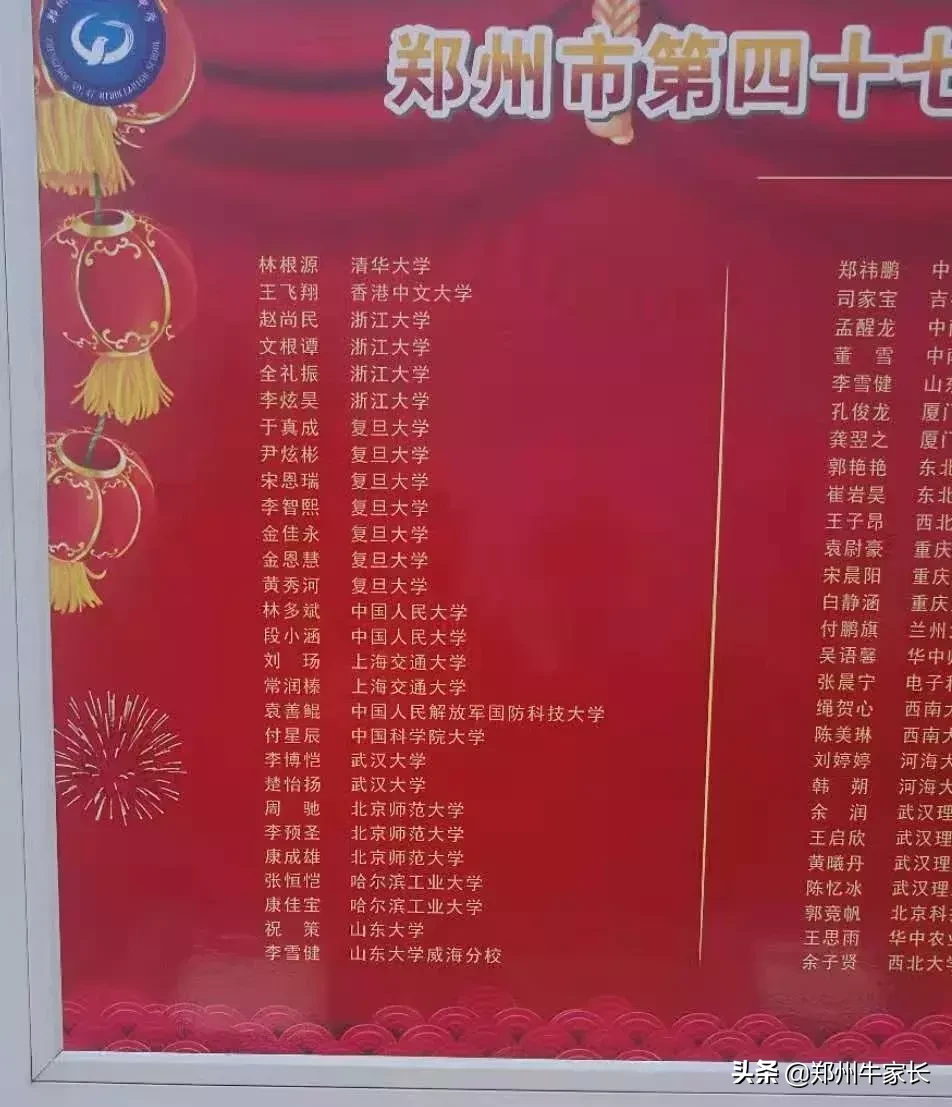 郑州市第四十七
林根源 清华大学
王飞翔 香港中文大学
赵尚民 浙江大学
文根谭 浙江大学
全礼振 浙江大学
李炫昊 浙江大学
于真成 复旦大学
尹炫彬 复旦大学
宋恩瑞 复旦大学
李智熙 复旦大学
金佳永 复旦大学
金恩慧 复旦大学
黄秀河 复旦大学
林多斌 中国人民大学
段小涵 中国人民大学
刘 玚 上海交通大学
常润榛 上海交通大学
袁善鲲 中国人民解放军国防科技大学
付星辰 中国科学院大学
李博恺 武汉大学
楚怡扬 武汉大学
周 驰 北京师范大学
李预圣 北京师范大学
康成雄 北京师范大学
张恒恺 哈尔滨工业大学
康佳宝 哈尔滨工业大学
祝 策 山东大学
李雪健 山东大学威海分校
郑祎鹏 中
司家宝 吉
孟醒龙 中南
董 雪 中南
李雪健 山东
孔俊龙 厦门
龚翌之 厦门
郭艳艳 东北
崔岩昊 东北
王子昂 西北
袁尉豪 重庆
宋晨阳 重庆
白静涵 重庆
付鹏旗 兰州
吴语馨 华中师
张晨宁 电子科
绳贺心 西南大
陈美琳 西南大
刘婷婷 河海大
韩 朔 河海大
余 润 武汉理
王启欣 武汉理
黄曦丹 武汉理
陈忆冰 武汉理
郭竞帆 北京科
王思雨 华中农业
余子贤 西北大学
头条 @郑州牛家长